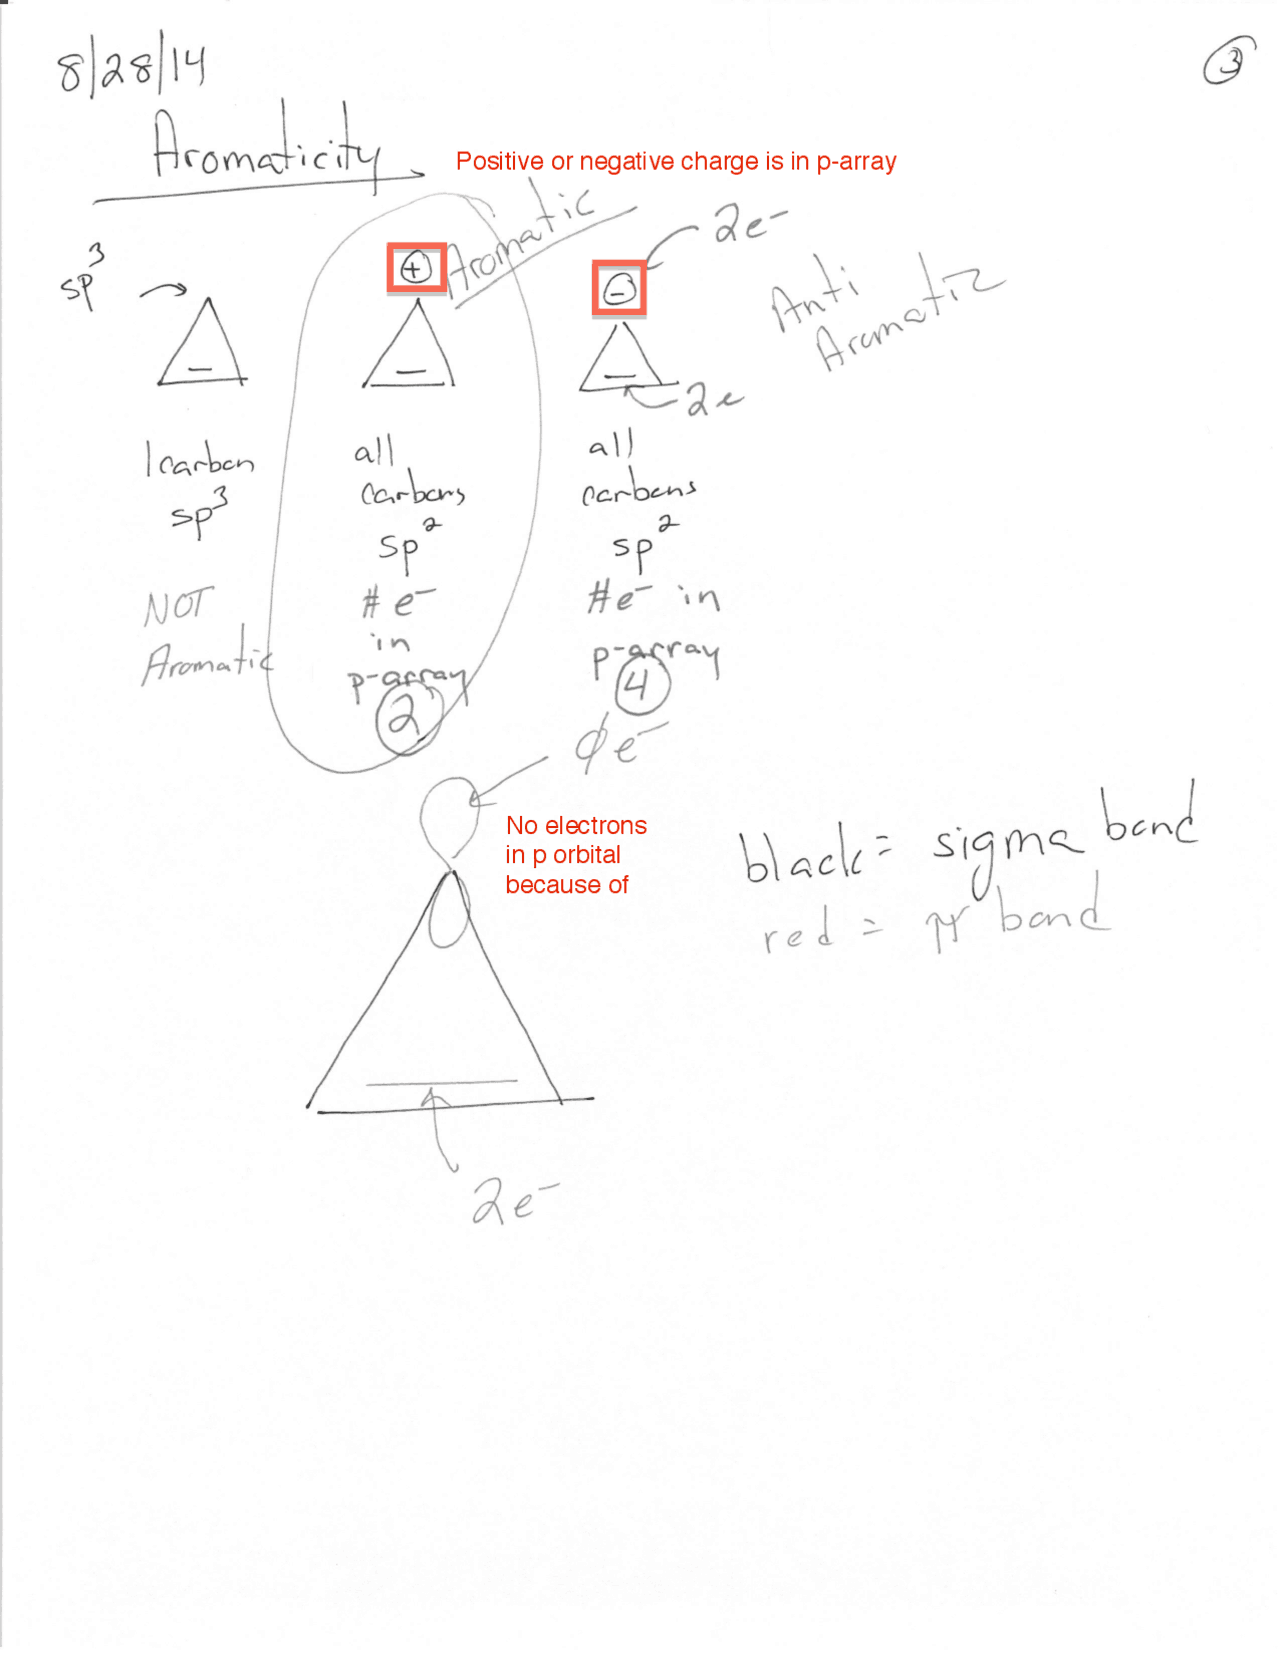 8/28/14
③
Aromaticity
Positive or negative charge is in p-array
sp³
⊕
Aromatic
⊖
2e⁻
Anti
Aromatic
2e
1 carbon
sp³
NOT
Aromatic
all
carbons
sp²
# e⁻
in
p-array
2
all
carbons
sp²
#e⁻ in
p-array
4
∅e⁻
No electrons
in p orbital
because of
black = sigma bond
red = π bond
2e⁻